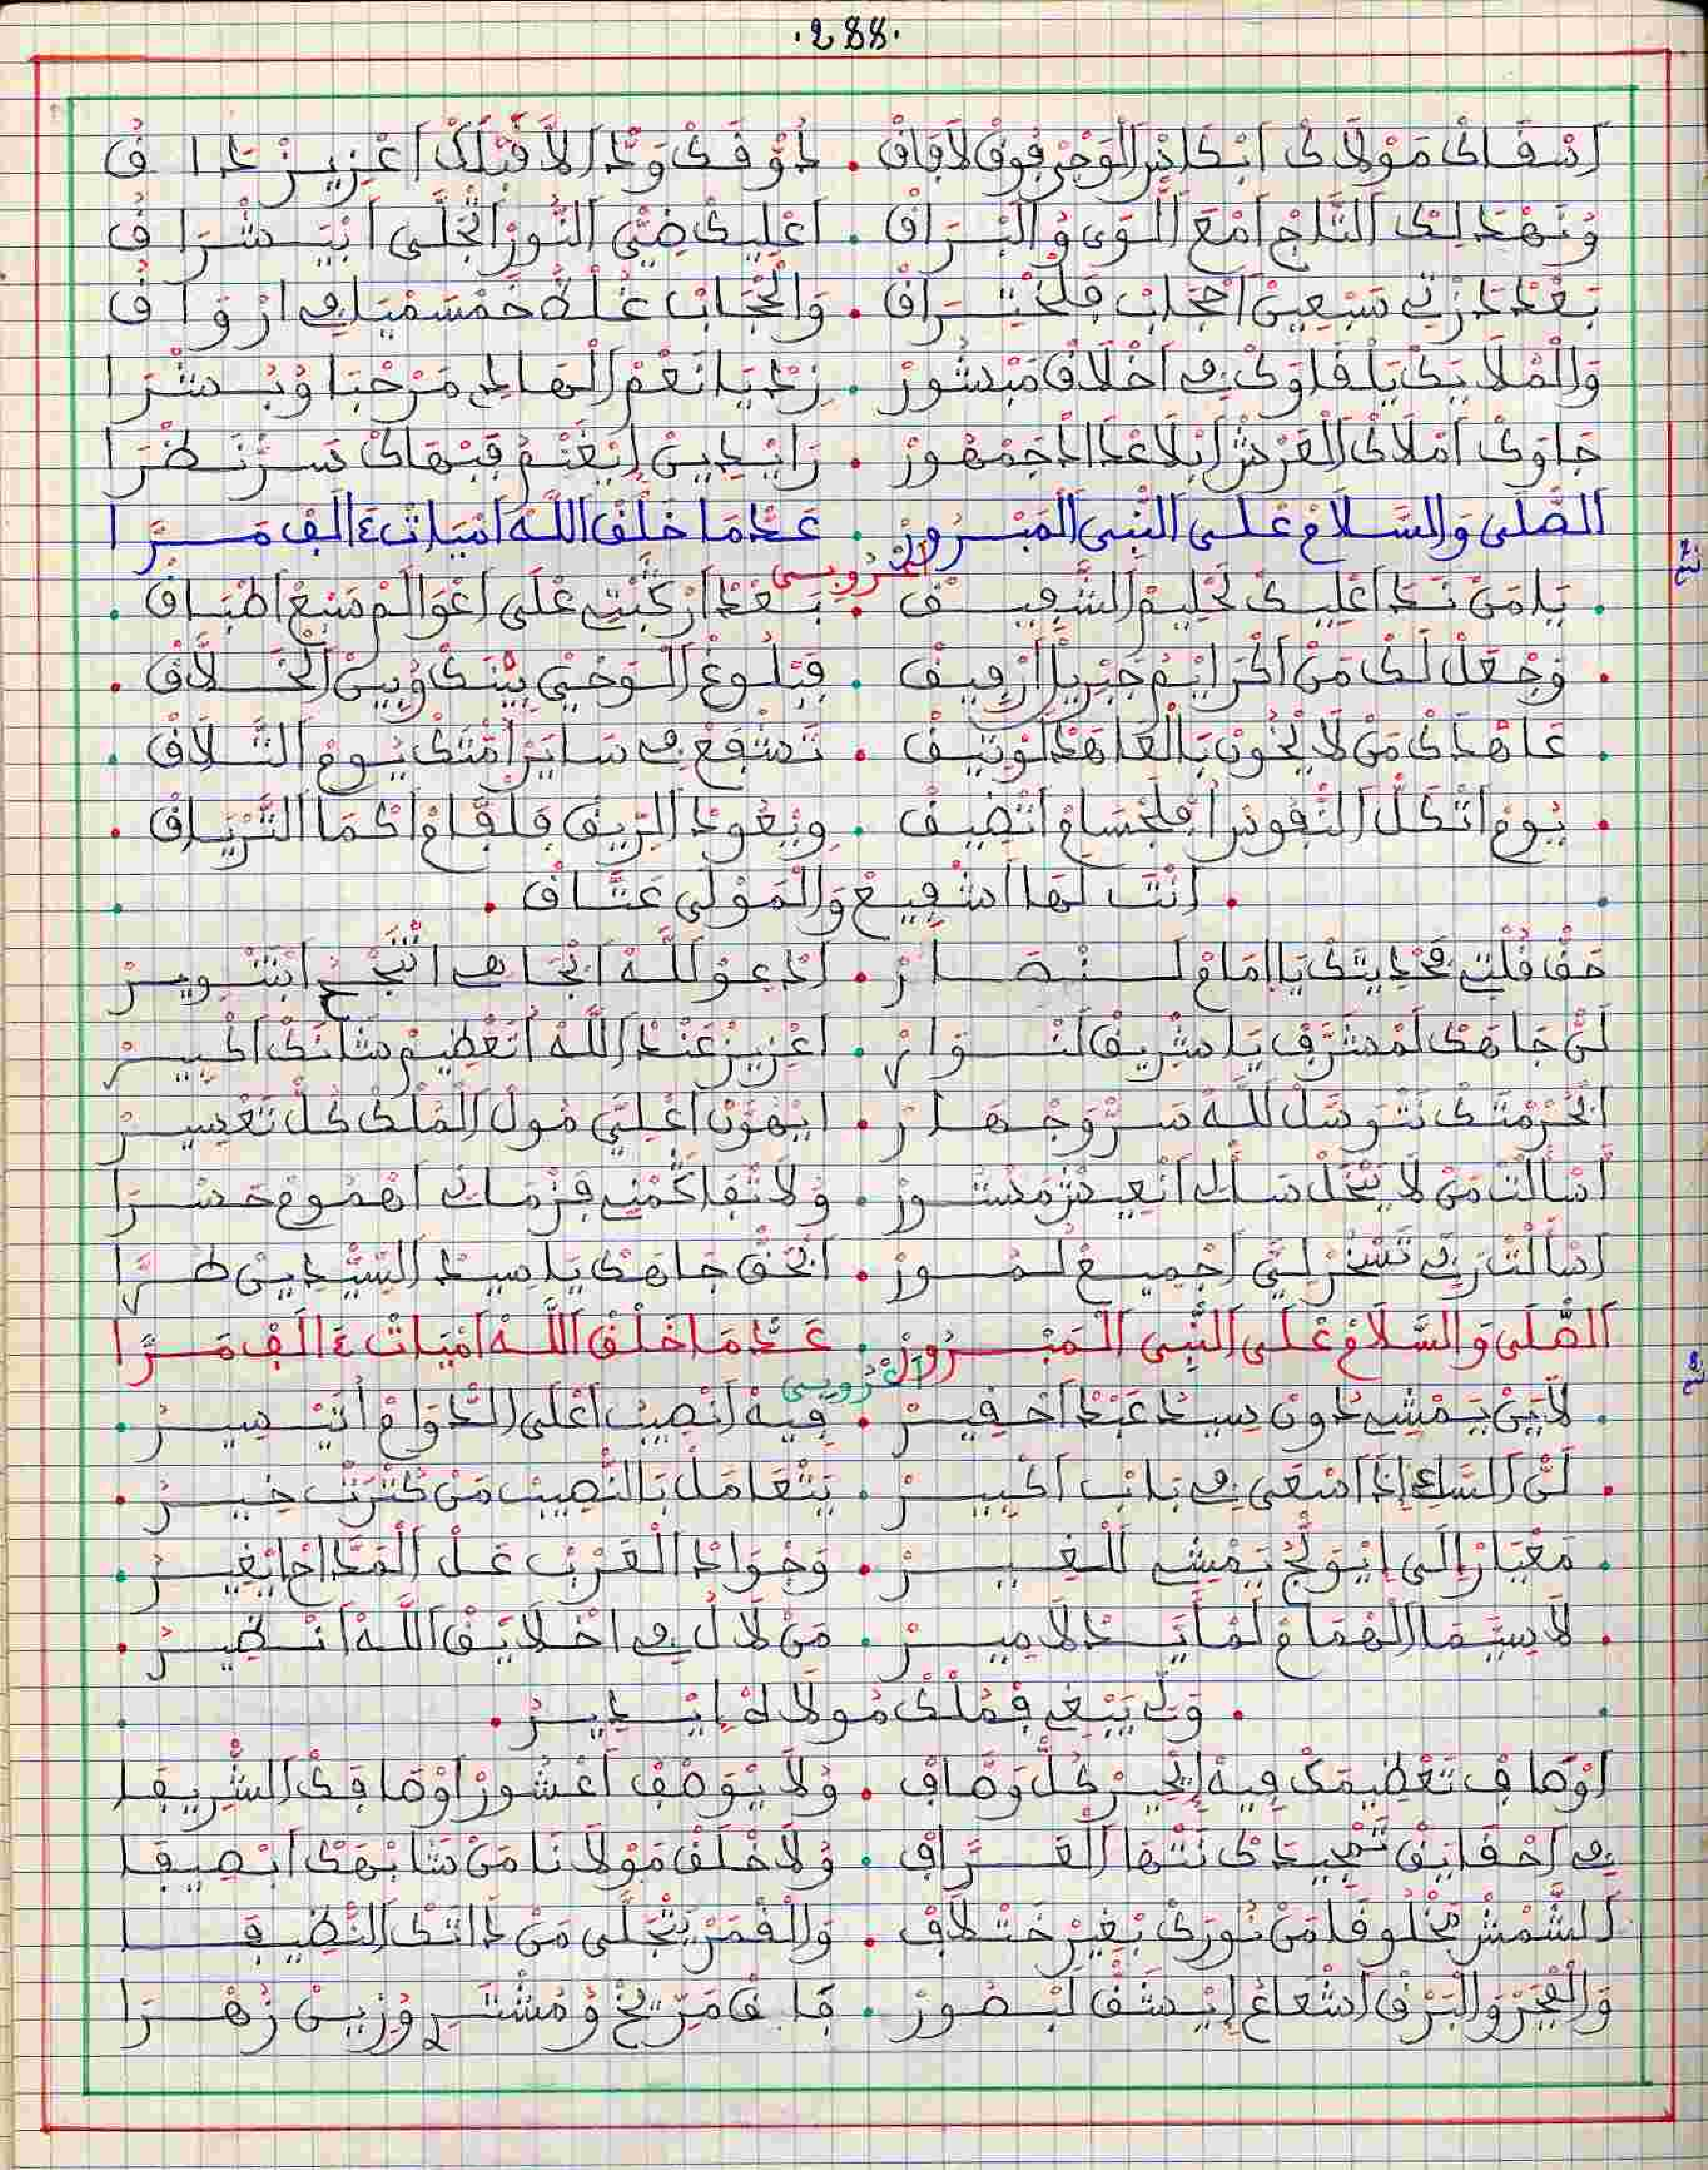 .288.
اسقاك مولاك ابكاس الوجر فوق لافاق . دوقك ود الا قبلك اعزيز داق
ونهد لك التاج امع اللوى والبراق . اعليك ضي النور اتجلى ابيشراق
بعد زدتي سبعين احجاب فلختراق . والحجاب غلظ خمسميا في ارواق
والملايك يالقاوك في اخلاق مبشور . زد يا نعم الهادي مرحبا وبشرا
جاوك املاك العرش ابلا عدا الجمهور . رايدين ايغنم فبهاك سر نظرا
الصلى والسلام على النبي المبرور . عد ما خلق الله اميات ٤ الف مرا
اعروبي
. يا من ندا عليك لحليم الشفيق . بعد اركبتي على اعوالم سبع اطباق .
. وجعل لك من اكرايم جبريل ارفيق . فبلوغ الوحي بينك وبين الخلاق .
. عاهدك من لا يخون بالعاهد لوتيق . تشفع في ساير امتك يوم التلاق .
. يوم اتكل النفوس افلجسام اتضيق . ويعود الريق فلفام اكما الترياق .
. انت لها اشفيع والمولى عتاق .
حق قلت فحديتك يا امام لنصار . ادعو لله ابجاهي اتنجح ابتنوير
لن جاهك لمشرف يا شريق لنوار . اعزيز عند الله اتعظيم شانك اكبير
ابحرمتك نتوسل لله سر وجهار . ايهون اعلي مول الملك كل تعسير
اسالت من لا يبخل سالي انعيش مستور . ولا تفاكمني فزماني اهموم حسرا
اسالت ربي تسخر لي اجميع لمور . ابحق جاهك يا سيد السيدين طرا
الصلى والسلام على النبي المبرور . عد ما خلق الله اميات ٤ الف مرا
اعروبي
. لاين يمشي دون سيد عبد احقير . فيه انصيب اعلى الدوام اتيسير .
. لن الساعي اذا سعى في باب اكبير . يتعامل بالنصيب من كترت خير .
. معيار الى ايولج يمشي للغير . وجواد العرب عل المداح ايغير .
. لا سيما الهمام لمايد لامير . من لا ل في اخلايق الله انضير .
. ولي يبغي فملك مولاه ايدير .
اوصاف تعظيمك فيه ايحير كل وصاف . ولا يوصف اعشور اوصافك الشريفا
في احقايق تمجيدك نتها العراف . ولا خلق مولانا من شابهك ابصيفا
الشمش مخلوقا من نورك بغير ختلاف . والقمر يتجلى من ذاتك النضيفا
والفجر والبرق اشعاع ايدشق لبصور . فاق مريخ ومشتري وزين زهرا